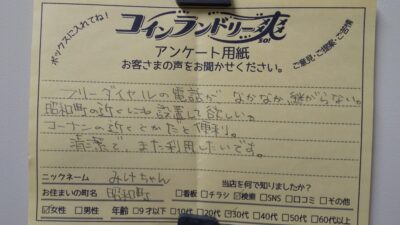 ボックスに入れてね!
コインランドリー爽
SO!
ご意見・ご提案・ご報告
アンケート用紙
お客さまの声をお聞かせください。
フリーダイヤルの電話が、なかなか継がらない。
昭和町の近くにも設置して欲しい。
コーナンの近くとかだと便利。
清潔で、また利用したいです。
ニックネーム みけちゃん
当店を何で知りましたか?
お住まいの町名 昭和町
□看板 □チラシ ☑検索 □SNS □口コミ □その他
☑女性 □男性 年齢 □9才以下 □10代 □20代 ☑30代 □40代 □50代 □60代以上